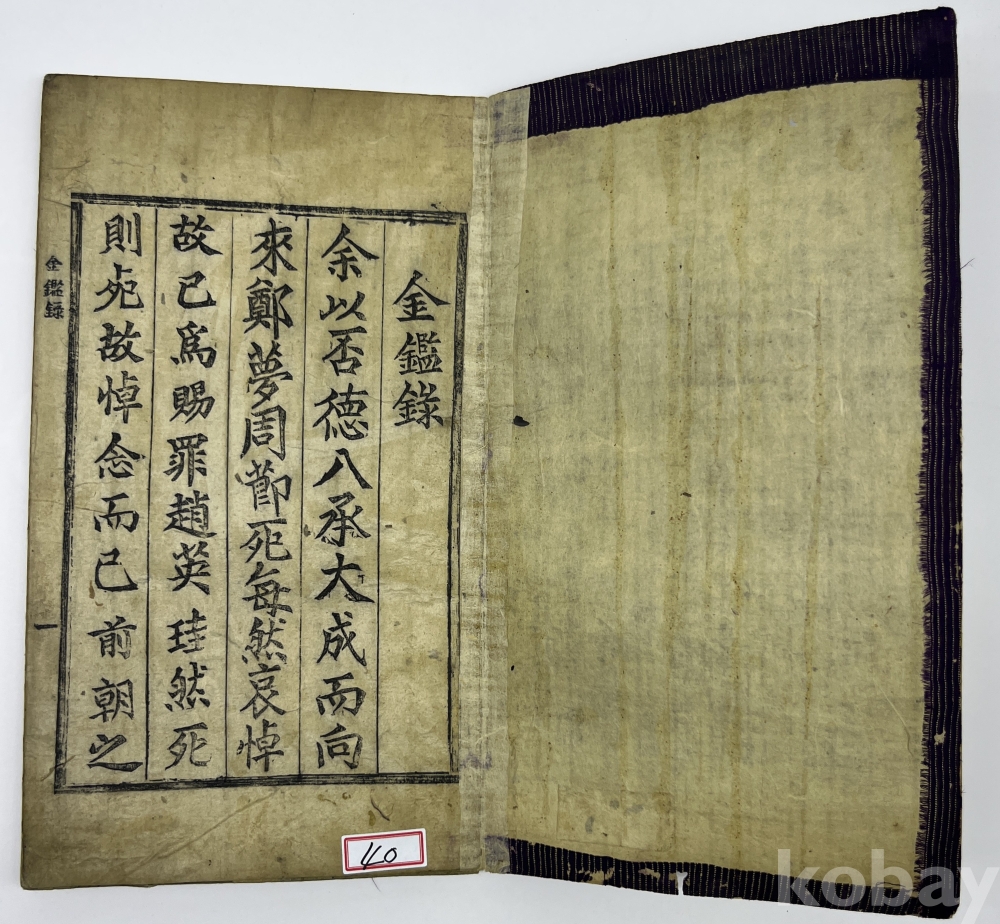 金鑑錄
余以否德八承大成而向
來鄭夢周節死每然哀悼
故已爲賜罪趙英珪然死
則死故悼念而已前朝之
金鑑錄
一
40
kobay